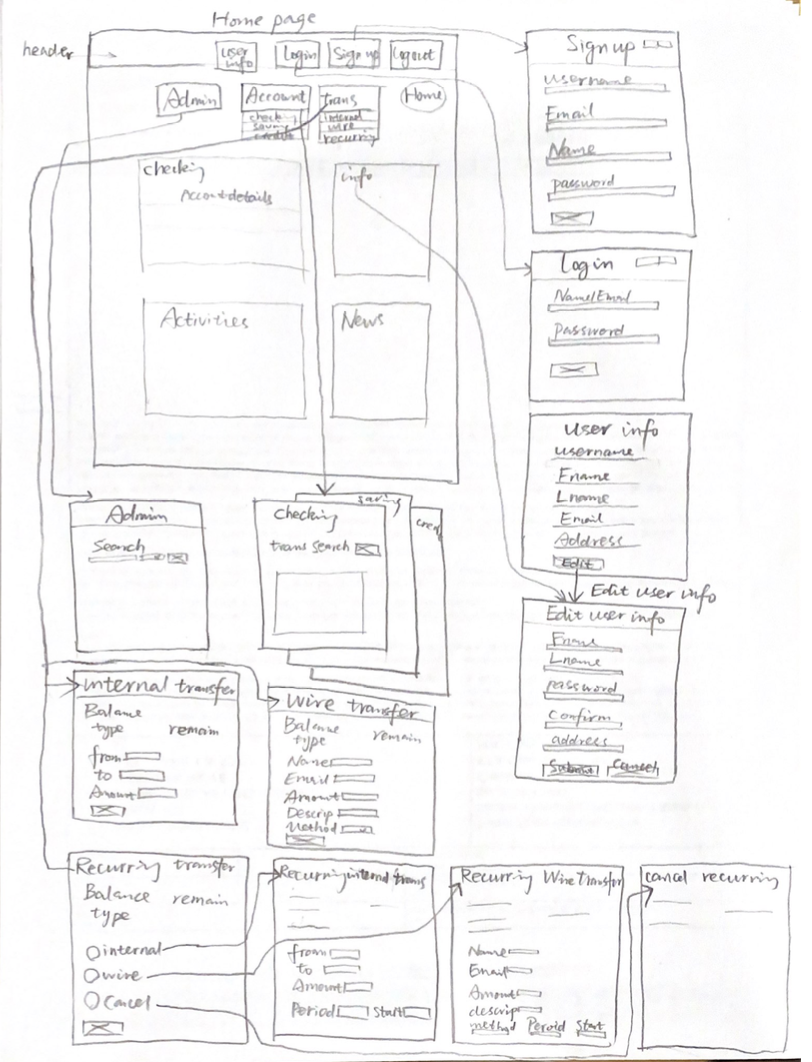 Home page
header
user info
Login
Sign up
Logout
Admin
Account
checking
saving
credit
trans
internal
wire
recurring
Home
checking
Account details
info
Activities
News
Sign up
username
Email
Name
password
Login
Name/Email
password
User info
username
Fname
Lname
Email
Address
Edit
Edit user info
Edit user info
Fname
Lname
password
confirm
address
Submit Cancel
Admin
Search
checking
trans search
saving
credit
internal transfer
Balance
type remain
from
to
Amount
Wire transfer
Balance
type remain
Name
Email
Amount
Descrip
Method
Recurring transfer
Balance remain
type
internal
wire
Cancel
Recurring internal trans
from
to
Amount
Period Start
Recurring Wire Transfer
Name
Email
Amount
descrip
method Peroid Start
cancel recurring